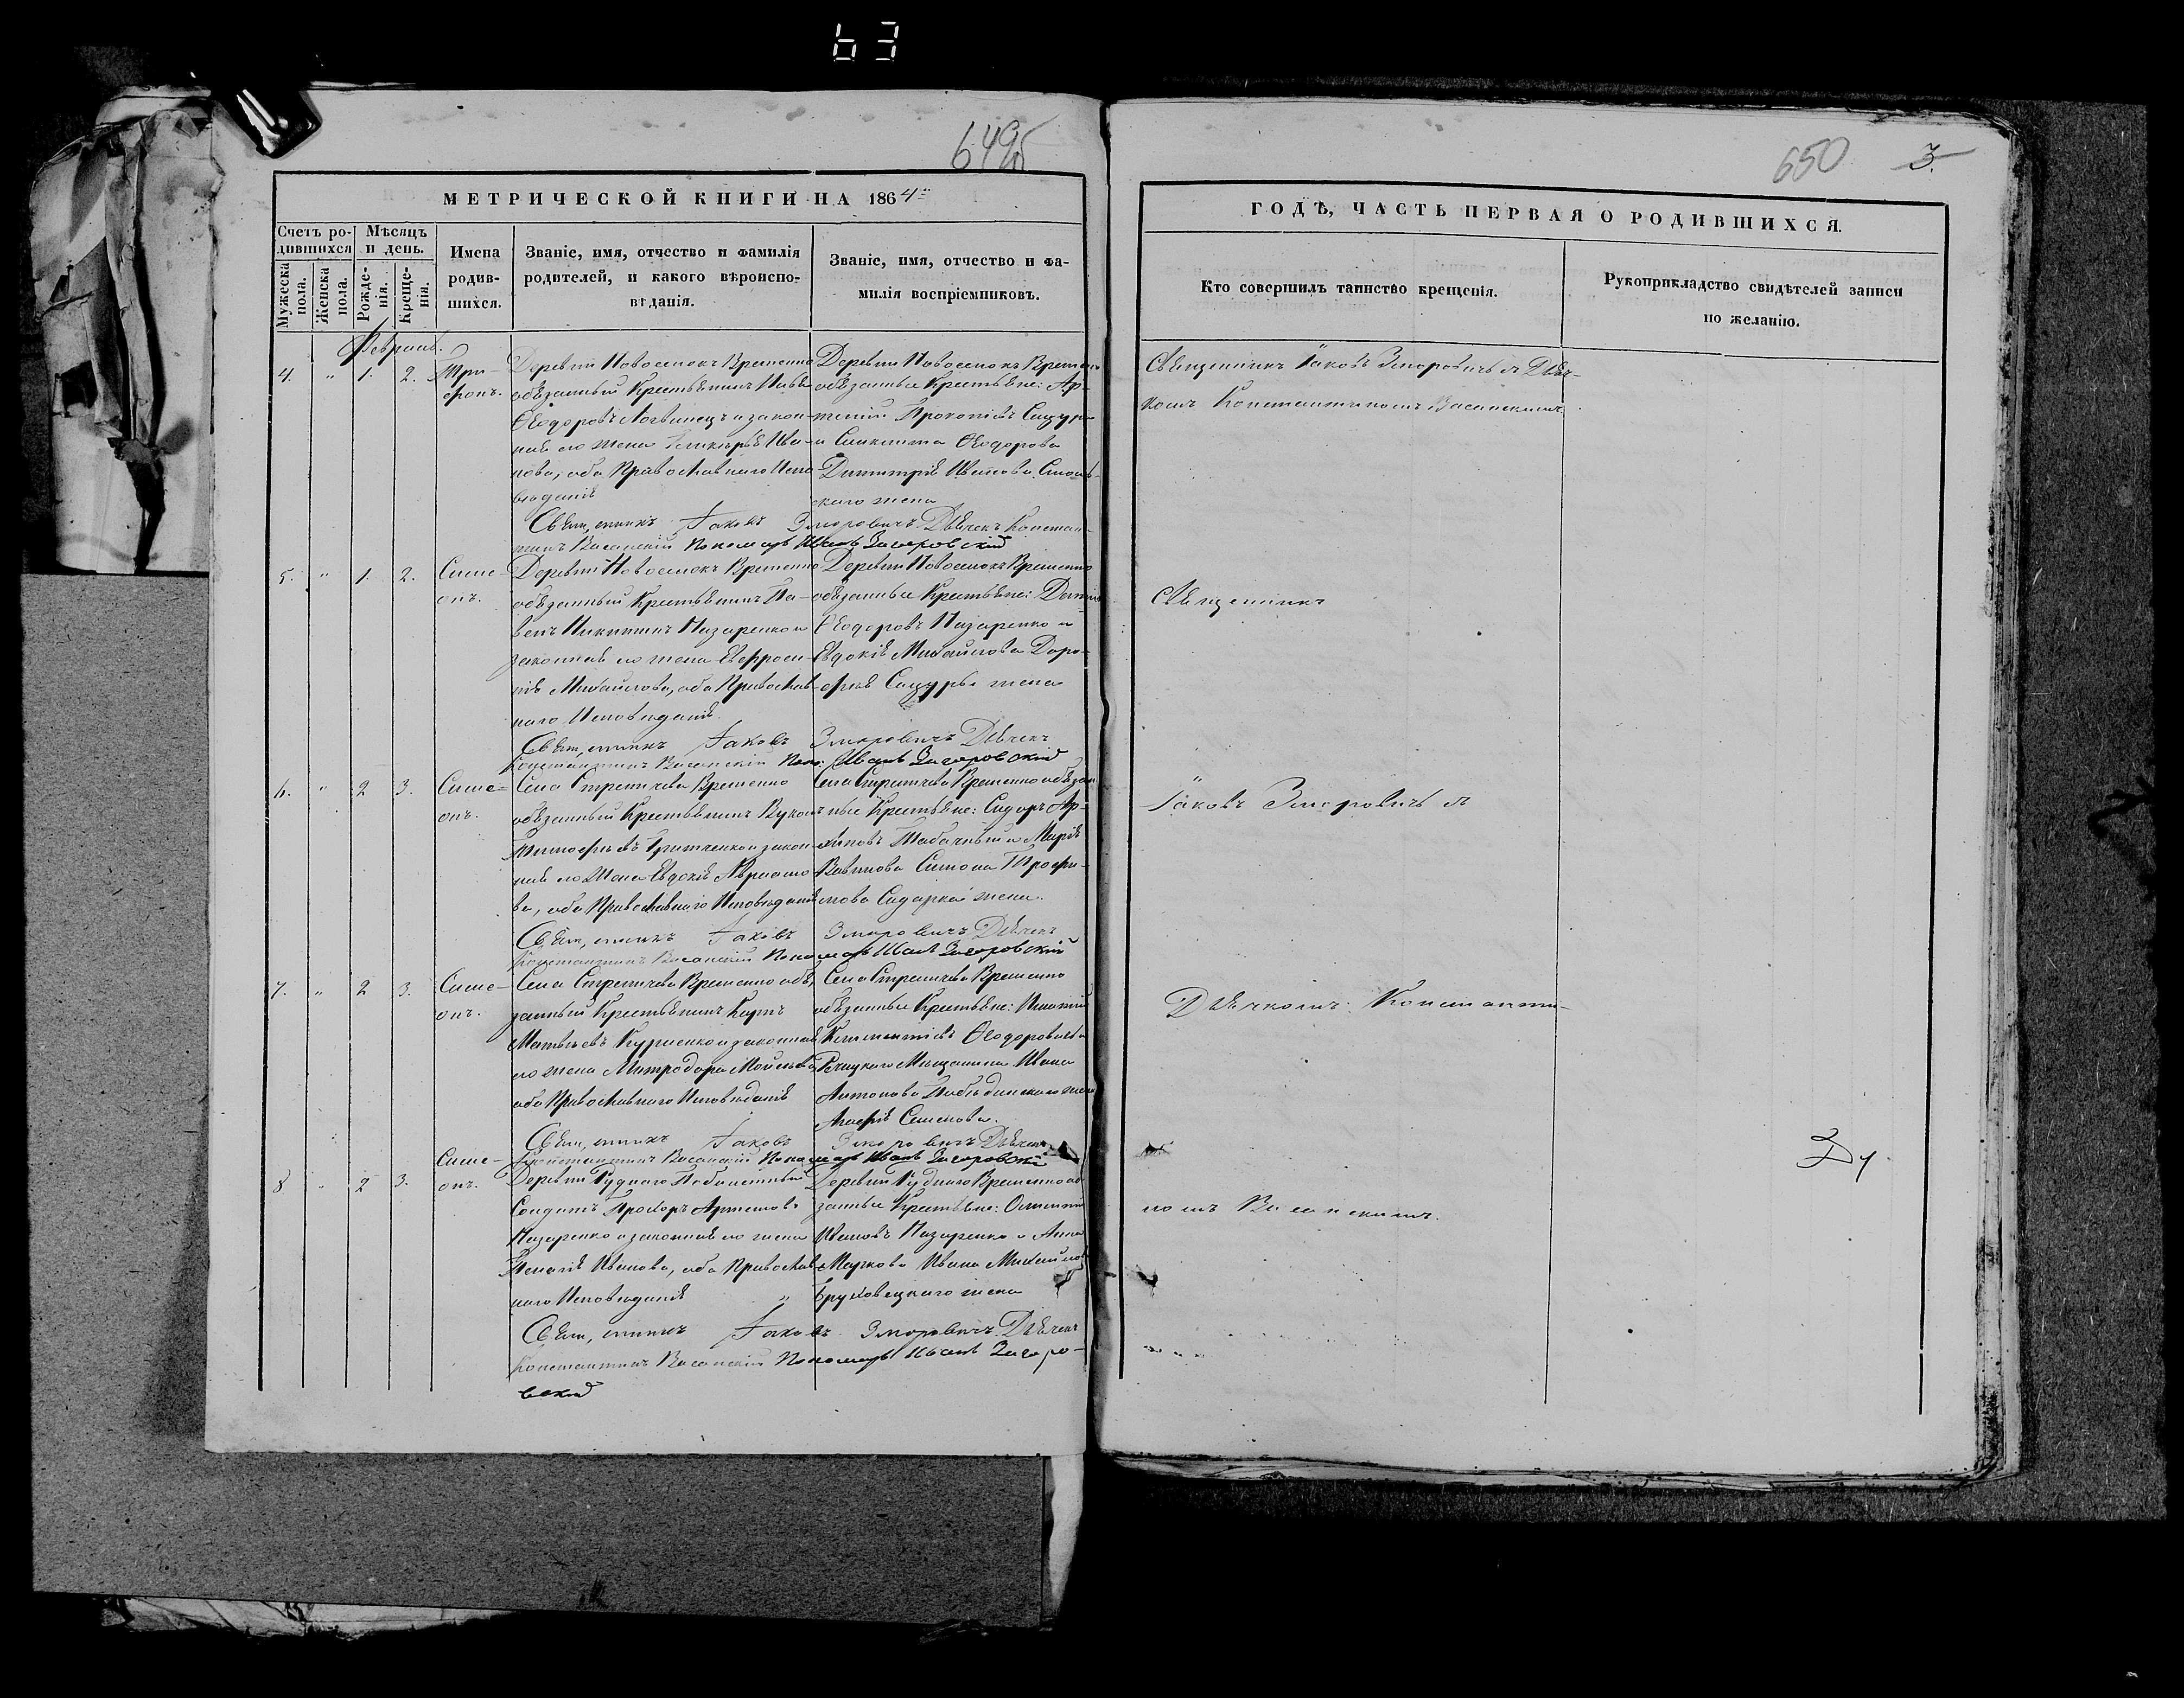 63
649об
650 3.
МЕТРИЧЕСКОЙ КНИГИ НА 1864й
Счетъ родившихся
Мѣсяцъ и день.
Мужеска пола.
Женска пола.
Рожденія.
Крещенія.
Имена родившихся.
Званіе, имя, отчество и фамилія родителей, и какого вѣроисповѣданія.
Званіе, имя, отчество и фамилія воспріемниковъ.
Февраль.
4. " 1. 2. Три-
фонъ.
Деревни Новоселокъ Временно
обязанный Крестьянинъ
Ѳеодоровъ и закон-
ная его жена Гликерія Ива-
нова, оба Православнаго Испо
вѣданія
Деревни Новоселокъ Времен
обязанные Крестьяне: Ар-
темій Прокопіевъ Сацура
и Ѳеодорова
Димитрія Иванова
скаго жена
Священникъ Іаковъ Зморовичъ Дьячекъ Констан-
тинъ Васанскій Пономарь Иванъ Загоровскій
5. " 1. 2. Симе-
онъ.
Деревни Новоселокъ Временно
обязанный Крестьянинъ Па-
велъ Никитинъ Назаренко и
законная его жена Евфроси-
нія Михайлова, оба Православ-
наго Исповѣданія.
Деревни Новоселокъ Временно
обязанные Крестьяне:
Ѳеодоровъ Назаренко и
Евдокія Михайлова Доро-
фея Сацуры жена
Священникъ Іаковъ Зморовичъ Дьячекъ
Константинъ Васанскій Поно: Иванъ Загоровскій
6. " 2 3. Симе-
онъ.
Села Стреличева Временно
обязанный Крестьянинъ Вукол
Тимофѣевъ Гриченко и закон
ная его жена Евдокія Авраамо
ва, оба Православнаго Исповѣданія
Села Стреличева Временно обязан
ные Крестьяне: Сидоръ Ар-
хиповъ Табачный и Марія
Вавилова Симона Трофи-
мова Сидарка жена.
Священникъ Іаковъ Зморовичъ Дьячекъ
Константинъ Васанскій Пономарь Иванъ Загоровскій
7. " 2 3. Симе-
онъ.
Села Стреличева Временно обя
занный Крестьянинъ Карпъ
Матвѣевъ Куриленко и законная
его жена Митродора Моисеева
оба Православнаго Исповѣданія
Села Стреличева Временно
обязанные Крестьяне: Игнатій
Климентіевъ
Рѣчицкаго Мѣщанина Ивана
Антонова жена
Агафія Семенова.
Священникъ Іаковъ Зморовичъ Дьячекъ
Константинъ Васанскій Пономарь Иванъ Загоровскій
8 " 2 3. Симе-
онъ.
Деревни Руднаго Побилетный
Солдатъ Прохоръ Артемовъ
Назаренко и законная его жена
Пелагія Иванова, оба Православ
наго Исповѣданія "
Деревни Руднаго Временно об
занные Крестьяне:
Ивановъ Назаренко и Анна
Маркова Ивана Михайлова
Бруховецкаго жена
Священникъ Іаковъ Зморовичъ Дьячекъ
Константинъ Васанскій Пономарь Иванъ Загоро-
вский
ГОДѢ, ЧАСТЬ ПЕРВАЯ О РОДИВШИХСЯ.
Кто совершилъ таинство крещенія.
Рукоприкладство свидѣтелей записи по желанію.
Священникъ Іаковъ Зморовичъ съ Дьяч-
комъ Константиномъ Васанскимъ.
Священникъ
Іаковъ Зморовичъ съ
Дьячкомъ Константи-
номъ Васанскимъ.